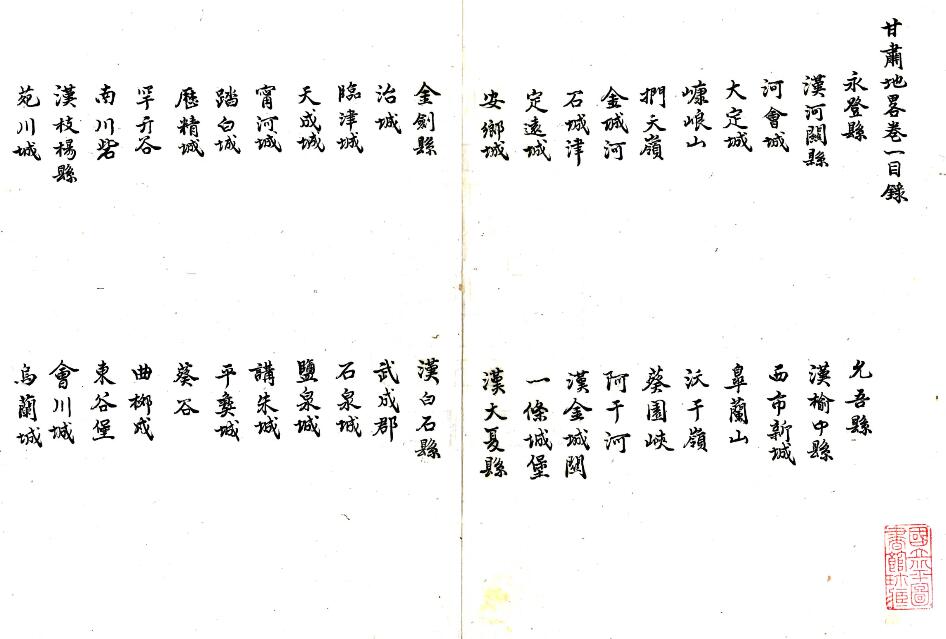 甘肅地畧卷一目錄
永登縣 允吾縣
漢河關縣 漢榆中縣
河會城 西市新城
大定城 臯蘭山
嵻崀山 沃干嶺
捫天嶺 葵園峽
金城河 阿干河
石城津 漢金城關
定遠城 一條城堡
安鄉城 漢大夏縣
金劍縣 漢白石縣
治城 武成郡
臨津城 石泉城
天成城 鹽泉城
甯河城 講朱城
踏白城 平彜城
歷精城 葵谷
罕幵谷 曲栁戍
南川砦 東谷堡
漢枝楊縣 會川城
苑川城 烏蘭城